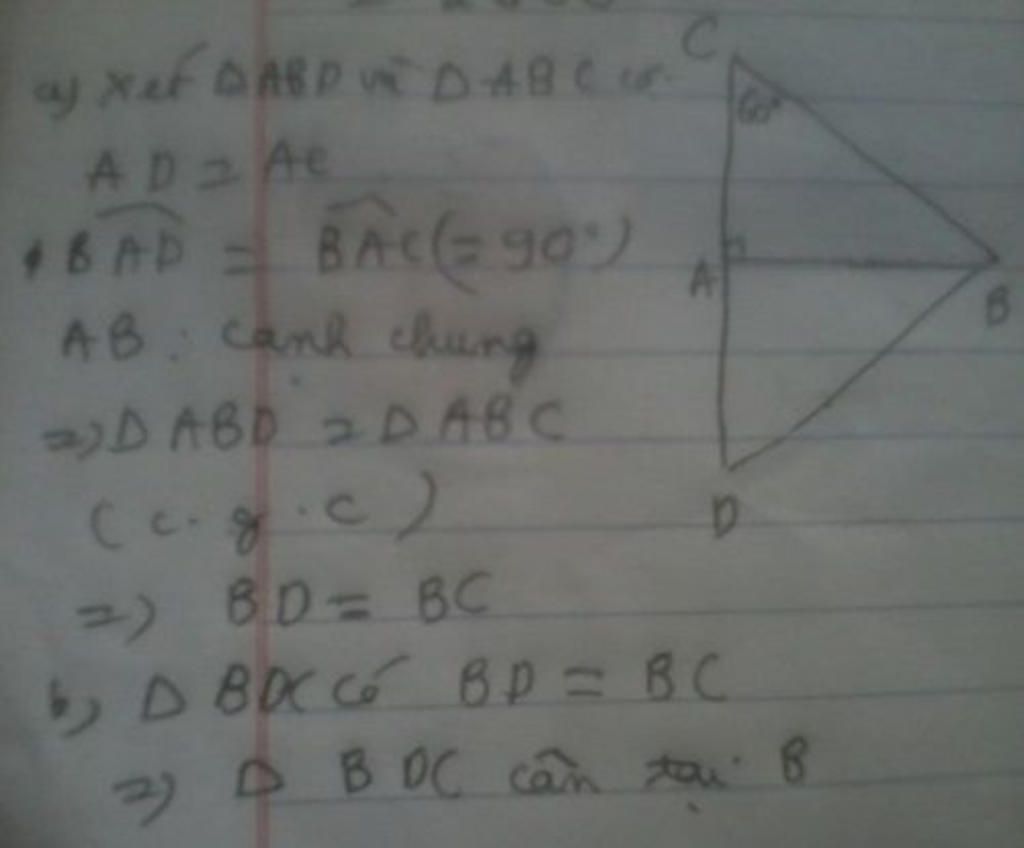 a) Xét Δ ABD và Δ ABC có
AD = AC
BAD = BAC (= 90°)
AB : cạnh chung
=> Δ ABD = Δ ABC
(c.g.c)
=> BD = BC
b) Δ BDC có BD = BC
=> Δ BDC cân tại B
C
60°
A
B
D